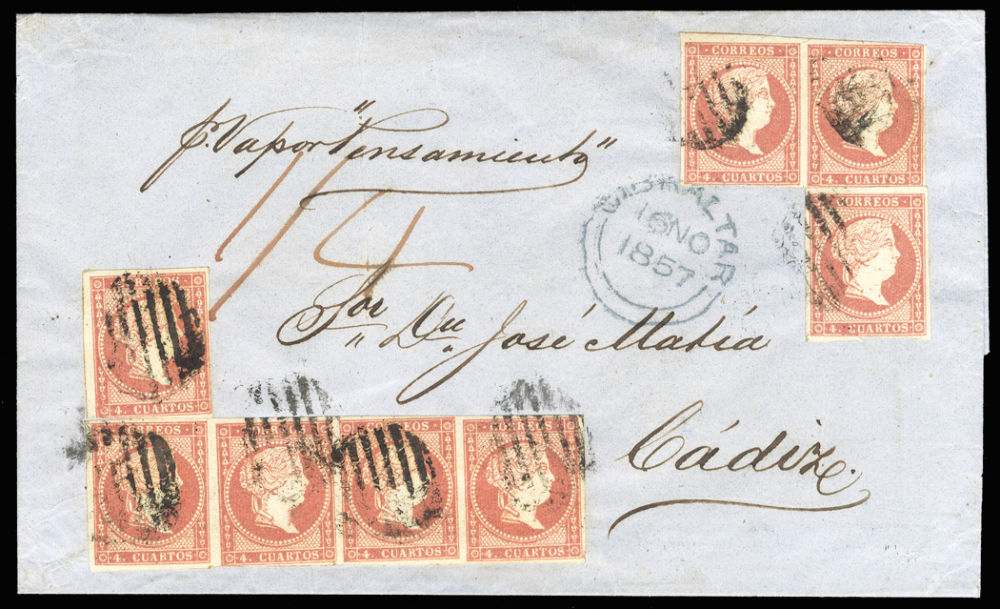 CORREOS CORREOS
4. CUARTOS 4. CUARTOS
p. Vapor "Pensamiento"
CORREOS
4. CUARTOS
GIBRALTAR
16 NO
1857
Sor Dn José Matía
Cádiz.
4. CUARTOS
CORREOS CORREOS CORREOS CORREOS
4. CUARTOS 4. CUARTOS 4. CUARTOS 4. CUARTOS